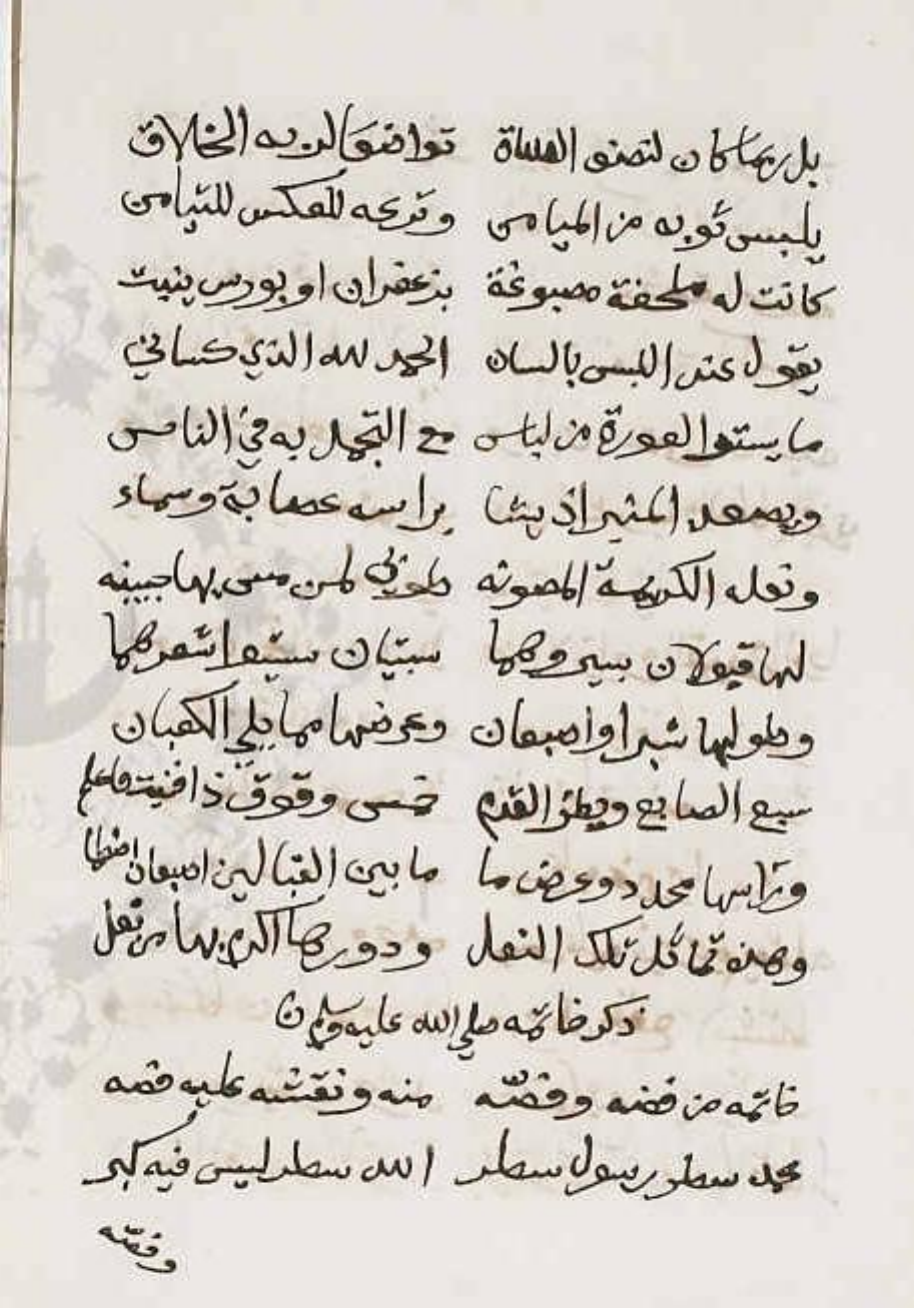 بل ربما كان لتصنو الصلاة تواضعا لربه الخلاق
يلبس ثوبه من الميامن ونزعه للعكس للتيامن
كانت له ملحفة مصبوغة بزعفران او بورس ينبت
يقول عند اللبس بالسان الحمد لله الذي كساني
ما يستر العورة من لباس مع التجمل به في الناس
ويصعد المنبر اذ يشا براسه عصابة وسماء
ونعله الكريمة المصونه طوبى لمن مس بها جبينه
لها قبولان بسير وهما سبتيان سبتوا شعرهما
وطولها شبر او اصبعان وعرضها مما يلي الكعبان
سبع الصابع وبطن القدم خمس وفوق ذا فست فاعلم
وراسها محدد وعرض ما ما بين القبالين اصبعان اضبطهما
وهذه تماثل تلك النعل ودورها اكرم بها من نعل
ذكر خاتمه صلي الله عليه وسلم
خاتمه من فضه وفصه منه ونقشه عليه فصه
محمد سطر رسول سطر الله سطر ليس فيه كبر
وفصه